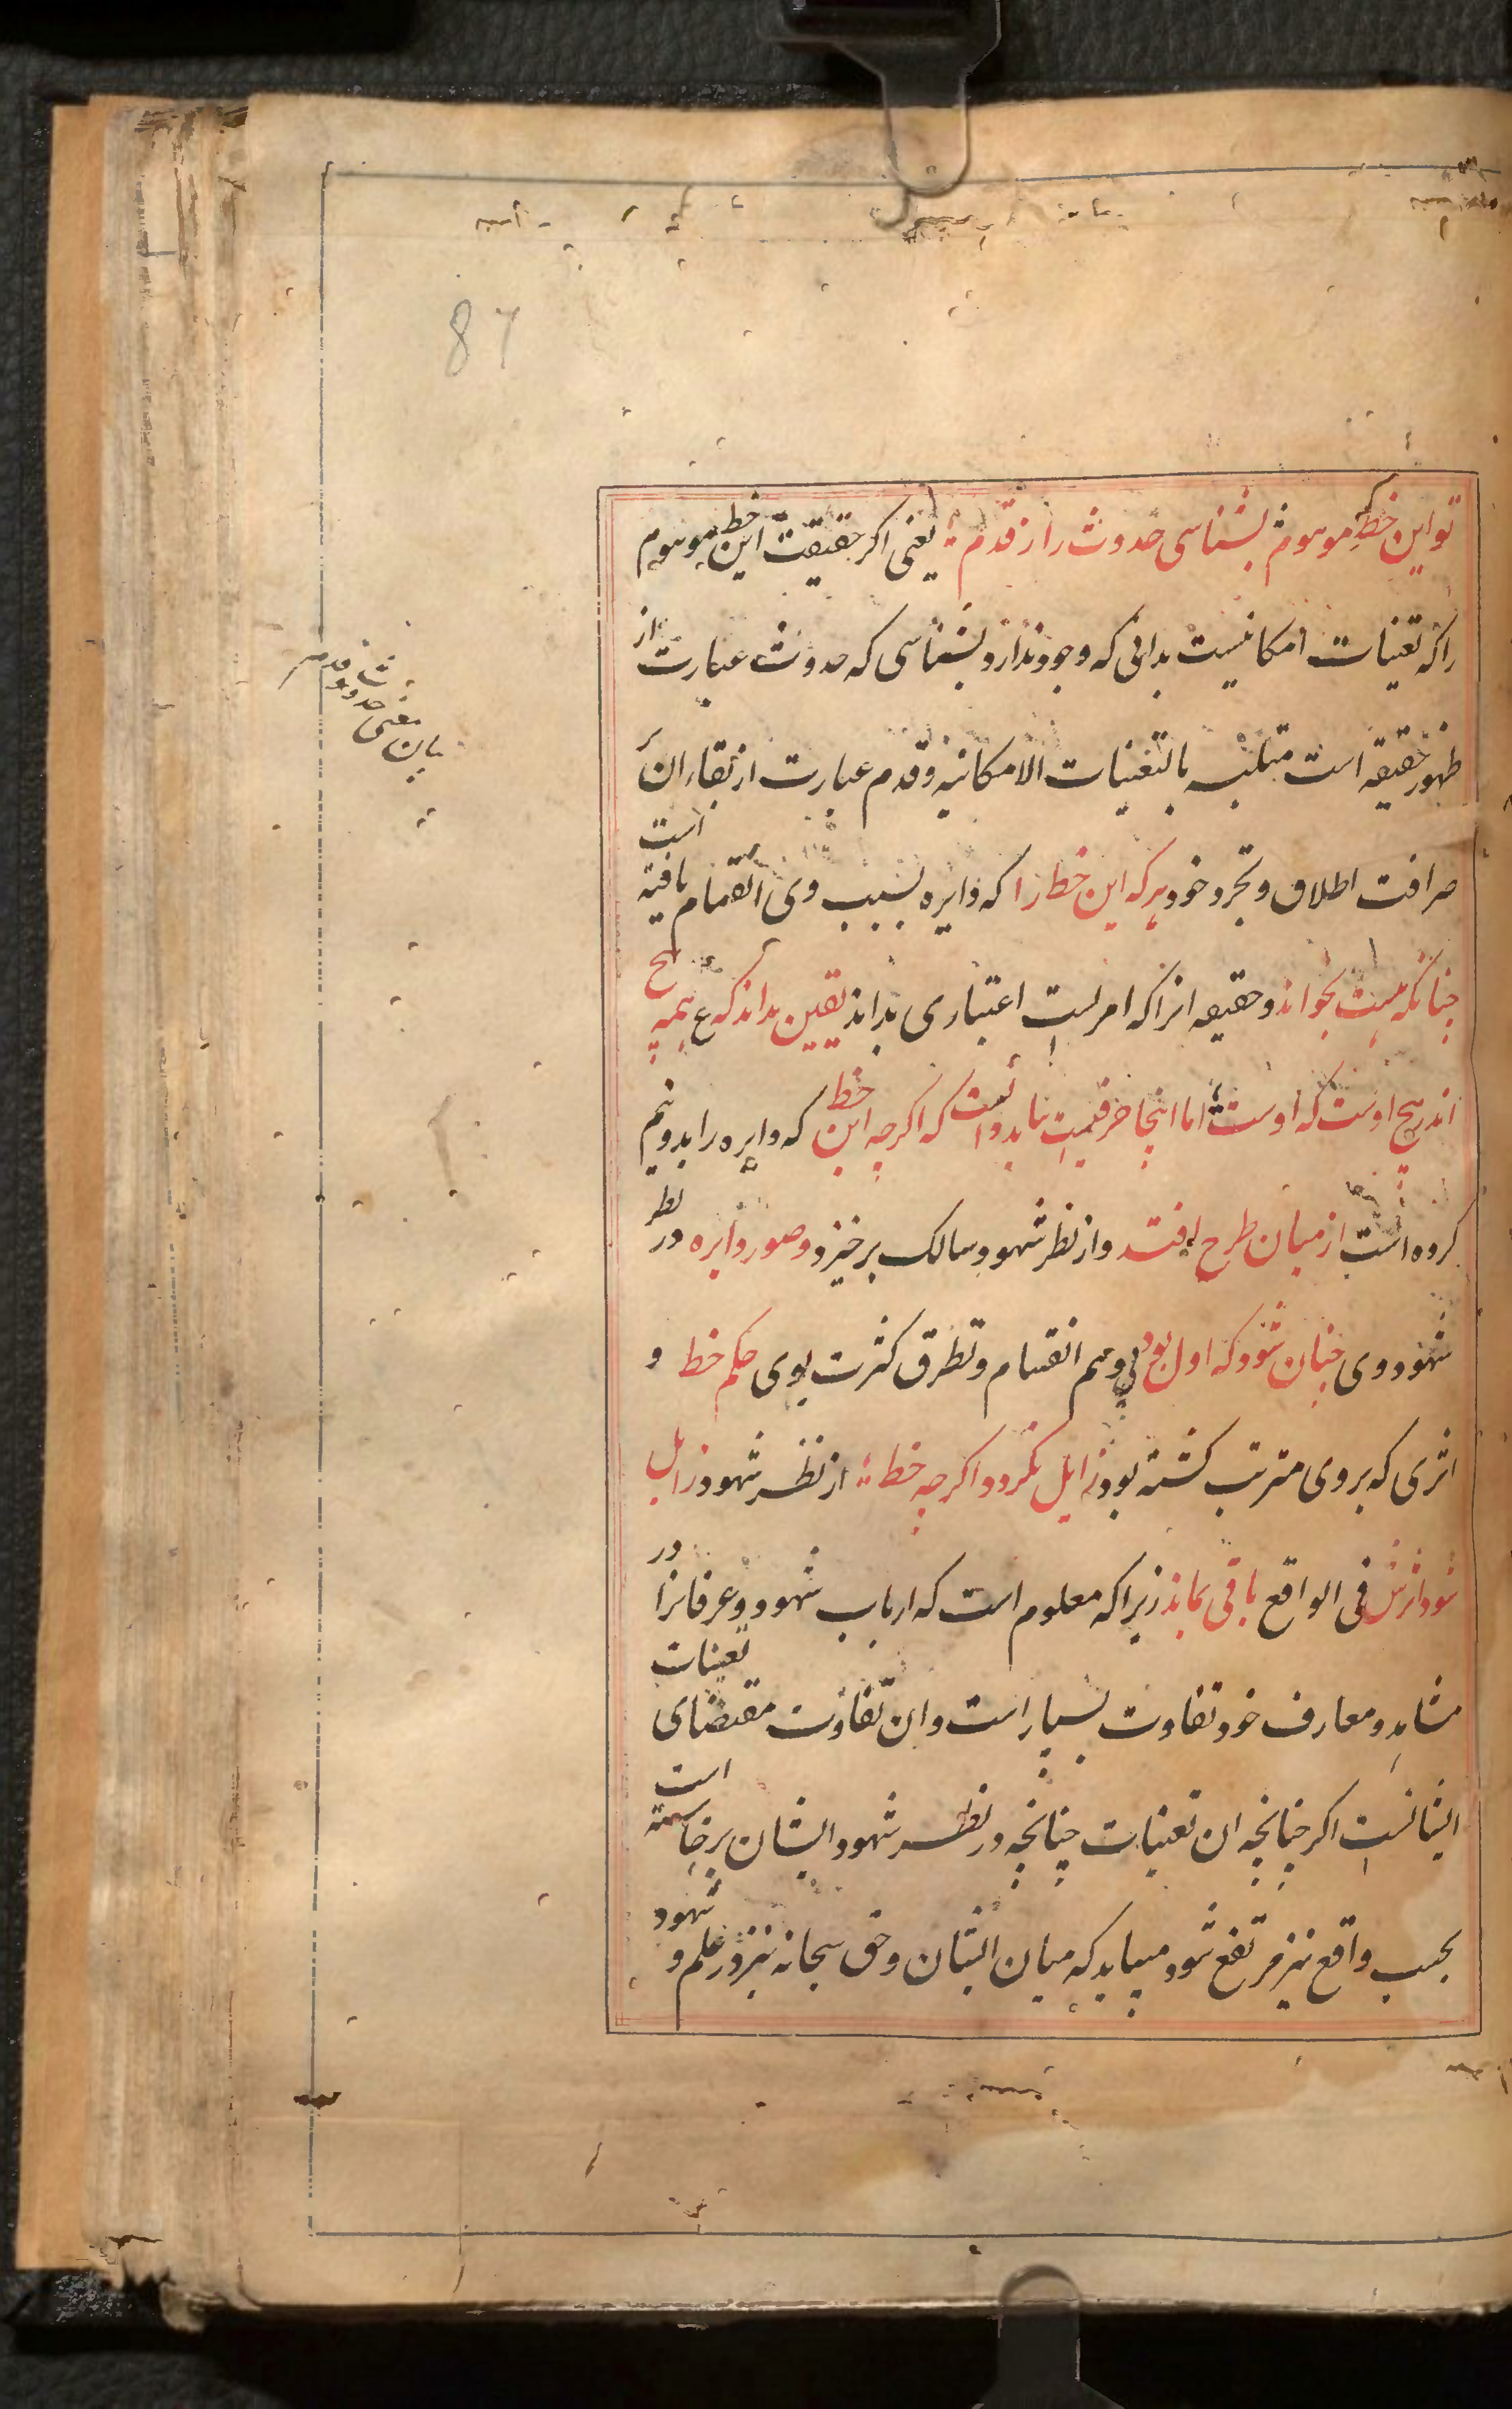 87
تو این خط موهوم بشناسی حدوث را ز قدم یعنی اکر حقیقت این خط موهوم
را که تعینات امکانیست بدانی که وجود ندارد بشناسی که حدوث عبارت از
ظهور حقیقه است متلبسه بالتعینات الامکانیه و قدم عبارت از بقاء ان بر
صرافت اطلاق و تجرد خود هر که این خط را که دایره بسبب وی انقسام یافته است
چنانکه هست بخواند و حقیقه انرا که امریست اعتباری بداند یقین بداند که ع همه هیچ
اند هیچ اوست که اوست اما اینجا حرفیست بباید دانست که اکرچه این خط که دایره را بدو نیم
کرده است از میان طرح افتد و از نظر شهود سالک برخیزد و صور دایره در نظر
شهود وی چنان شود که اول بود بی وهم انقسام و تطرق کثرت بوی حکم خط و
اثری که بر وی مترتب کشته بود زایل نکردد اکرچه خط از نظر شهود زایل
شود اثرش فی الواقع باقی بماند زیرا که معلوم است که ارباب شهود و عرفانرا در
مشاهد و معارف خود تفاوت بسیار است و ان تفاوت مقتضای تعینات
ایشانست اکر چنانچه ان تعینات چنانچه در نظر شهود ایشان برخاسته است
بحسب واقع نیز مرتفع شود میباید که میان ایشان و حق سبحانه نیز در علم و شهود
بیان
معنی
حدوث
و قدم